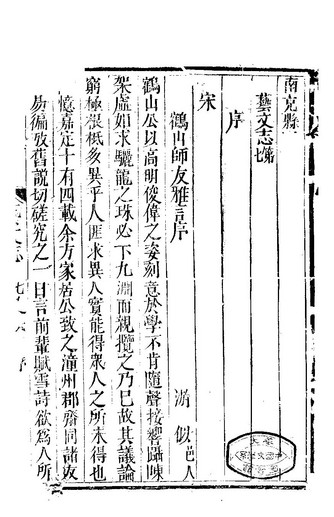 南充縣
藝文志
序
宋
鶴山師友雅言序
游似邑人
鶴山公以高明俊偉之姿刻意於學不肯隨聲接響躡陳
架虛如求驪龍之珠必下九淵而親攬之乃已故其議論
窮極根柢亥異乎人匪求異人實能得衆人之所未得也
憶嘉定十有四載余方家居公致之潼州郡齋同諸友
易徧攷舊說切磋究之一日言前輩賦雪詩欲爲人所